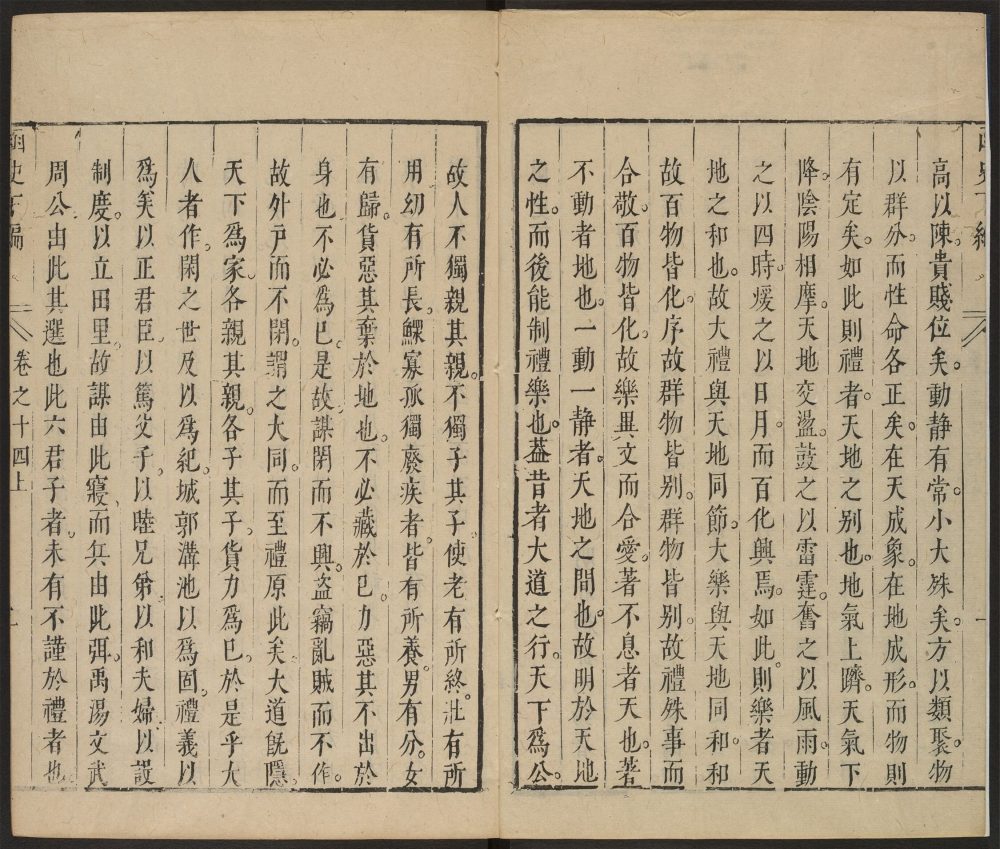 高以陳貴賤位矣動静有常小大殊矣方以類聚物
以群分而性命各正矣在天成象在地成形而物則
有定矣如此則禮者天地之别也地氣上隮天氣下
降陰陽相摩天地交盪鼓之以雷霆奮之以風雨動
之以四時煖之以日月而百化興焉如此則樂者天
地之和也故大禮與天地同節大樂與天地同和和
故百物皆化序故群物皆别群物皆别故禮殊事而
合敬百物皆化故樂異文而合愛著不息者天也著
不動者地也一動一静者天地之間也故明於天地
之性而後能制禮樂也葢昔者大道之行天下爲公
故人不獨親其親不獨子其子使老有所終壯有所
用幼有所長鰥寡孤獨廢疾者皆有所養男有分女
有歸貨惡其棄於地也不必藏於已力惡其不出於
身也不必爲已是故謀閉而不興盜竊亂賊而不作
故外戸而不閉謂之大同而至禮原此矣大道既隱
天下爲家各親其親各子其子貨力爲已於是乎大
人者作閑之世及以爲紀城郭溝池以爲固禮義以
爲矣以正君臣以篤父子以睦兄弟以和夫婦以設
制度以立田里故謀由此寢而兵由此弭禹湯文武
周公由此其選也此六君子者未有不謹於禮者也
函史下編
卷之十四上